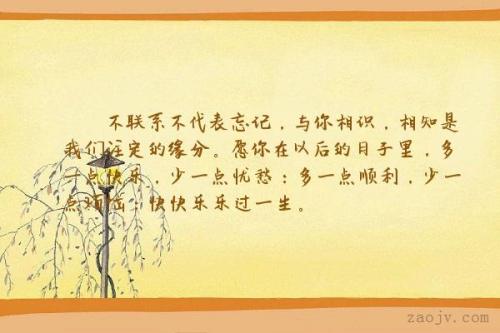 不联系不代表忘记，与你相识，相知是
我们注定的缘分。愿你在以后的日子里，多
一点快乐，少一点忧愁：多一点顺利，少一
点烦恼：快快乐乐过一生。
zaojv.com